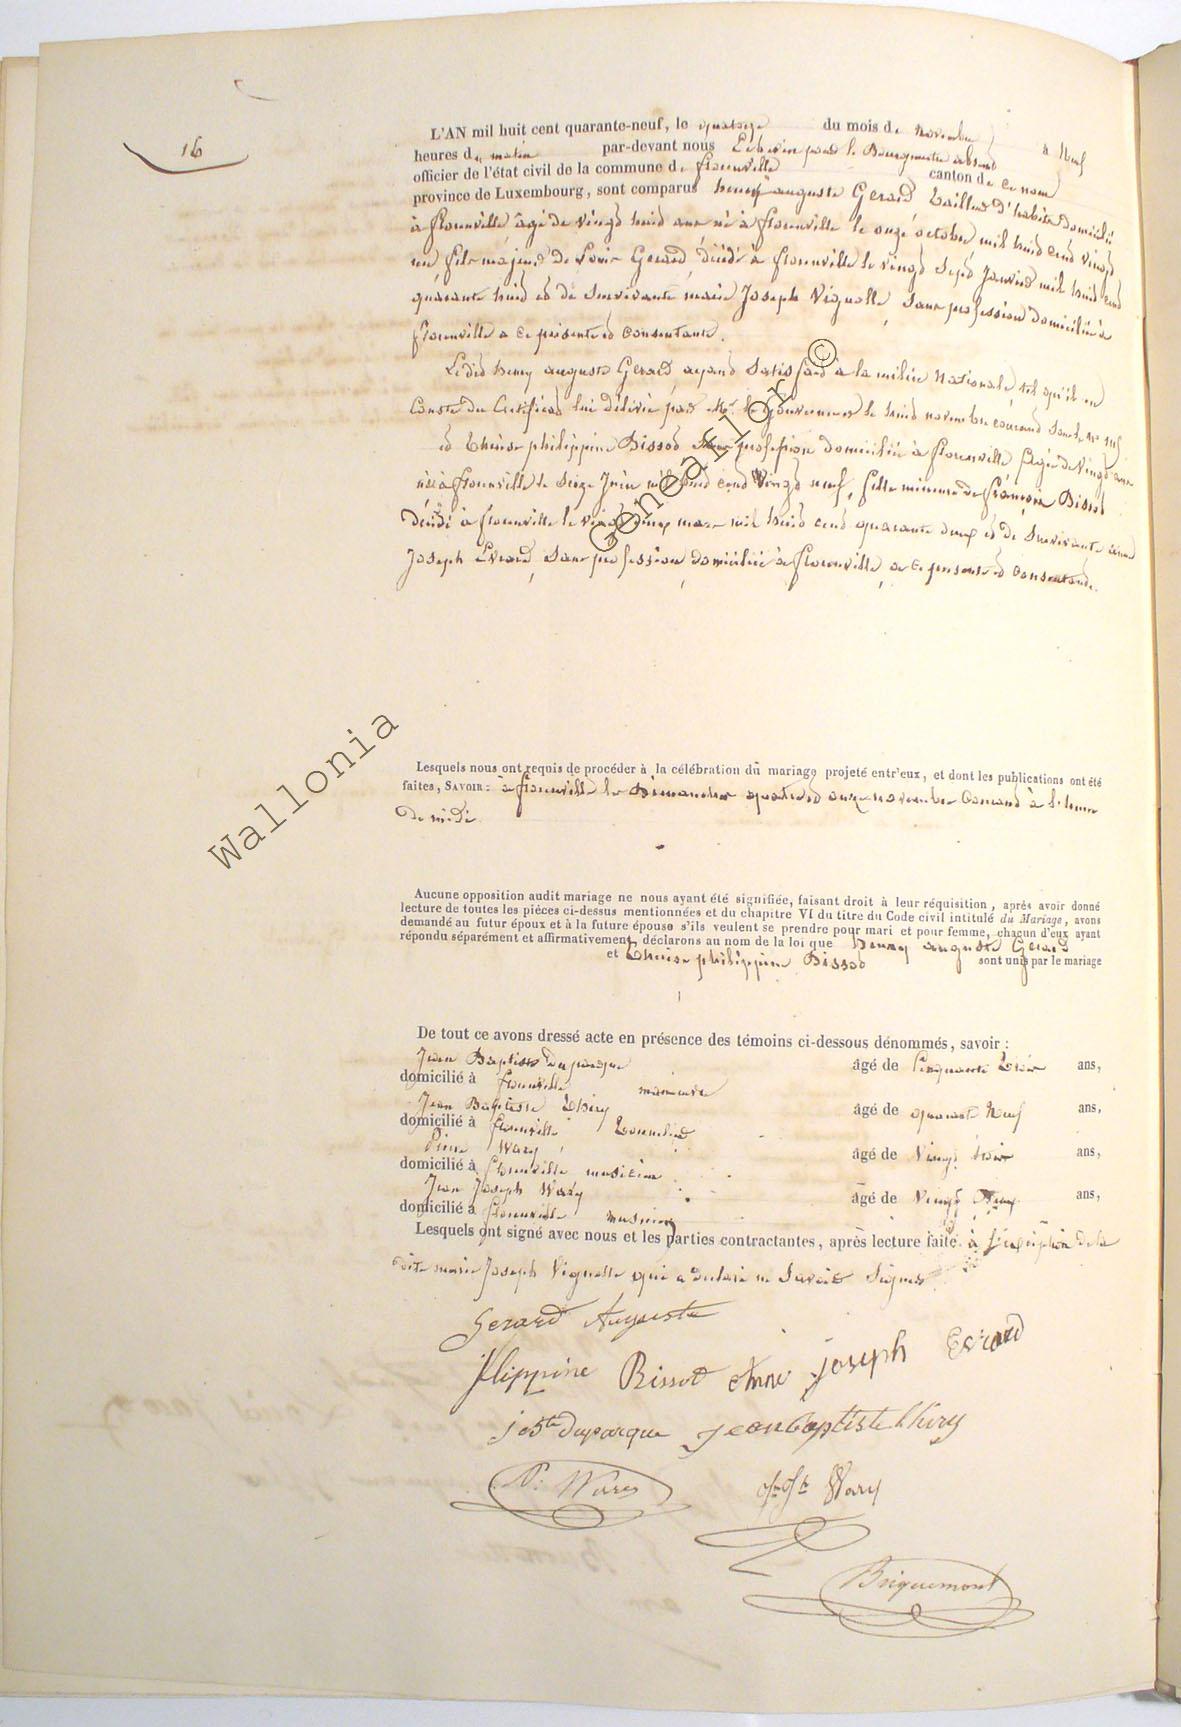 16
L'AN mil huit cent quarante-neuf, le quatorze du mois de novembre à neuf
heures du matin par-devant nous Echevin pour le Bourgmestre absent
officier de l'état civil de la commune de florenville canton de ce nom
province de Luxembourg, sont comparus henry auguste Gerard tailleur d'habits domicilié
à florenville âgé de vingt huit ans né à florenville le onze octobre mil huit cent vingt
un fils majeur de Louis Gerard, décédé à florenville le vingt sept Janvier mil huit cent
quarante huit et de Survivante marie Joseph Vignolle, Sans profession domiciliée à
florenville a ce présente et consentante.
Le dit henry auguste Gerard, ayant Satisfait à la milice Nationale, tel qu'il en
Conste du Certificat lui délivré par Mr. le Gouverneur le huit novembre courant Sous le no
et thérèse philippine Bissot Sans profession domiciliée à florenville, âgée de Vingt ans
née à florenville le Seize Juin mil huit cent Vingt neuf, fille mineure de françois Bissot
décédé à florenville le vingt deux mars mil huit cent quarante deux et de Survivante anne
Joseph Evrard, Sans profession, domiciliée à florenville, a ce présente et consentante.
Wallonia
Geneaflor ©
Lesquels nous ont requis de procéder à la célébration du mariage projeté entr'eux, et dont les publications ont été
faites, SAVOIR: à florenville les Dimanches quatre et onze novembre Courant à l'heure
de midi.
Aucune opposition audit mariage ne nous ayant été signifiée, faisant droit à leur réquisition, après avoir donné
lecture de toutes les pièces ci-dessus mentionnées et du chapitre VI du titre du Code civil intitulé du Mariage, avons
demandé au futur époux et à la future épouse s'ils veulent se prendre pour mari et pour femme, chacun d'eux ayant
répondu séparément et affirmativement, déclarons au nom de la loi que henry auguste Gerard
et thérèse philippine Bissot sont unis par le mariage
De tout ce avons dressé acte en présence des témoins ci-dessous dénommés, savoir:
Jean Baptiste duparque âgé de Cinquante trois ans,
domicilié à florenville
Jean Baptiste thiry âgé de quarante Neuf ans,
domicilié à florenville Tonnelier
Pierre Wary âgé de Vingt trois ans,
domicilié à florenville musicien
Jean Joseph Wary âgé de Vingt ans,
domicilié à florenville musicien
Lesquels ont signé avec nous et les parties contractantes, après lecture faite. à l'exception de la
dite marie Joseph Vignolle qui a déclaré ne Savoir Signer
Gerard Auguste
filippine Bissot anne joseph Evrard
j bste duparque jean baptiste thiry
P: Wary Jn Jh Wary
Briquemont